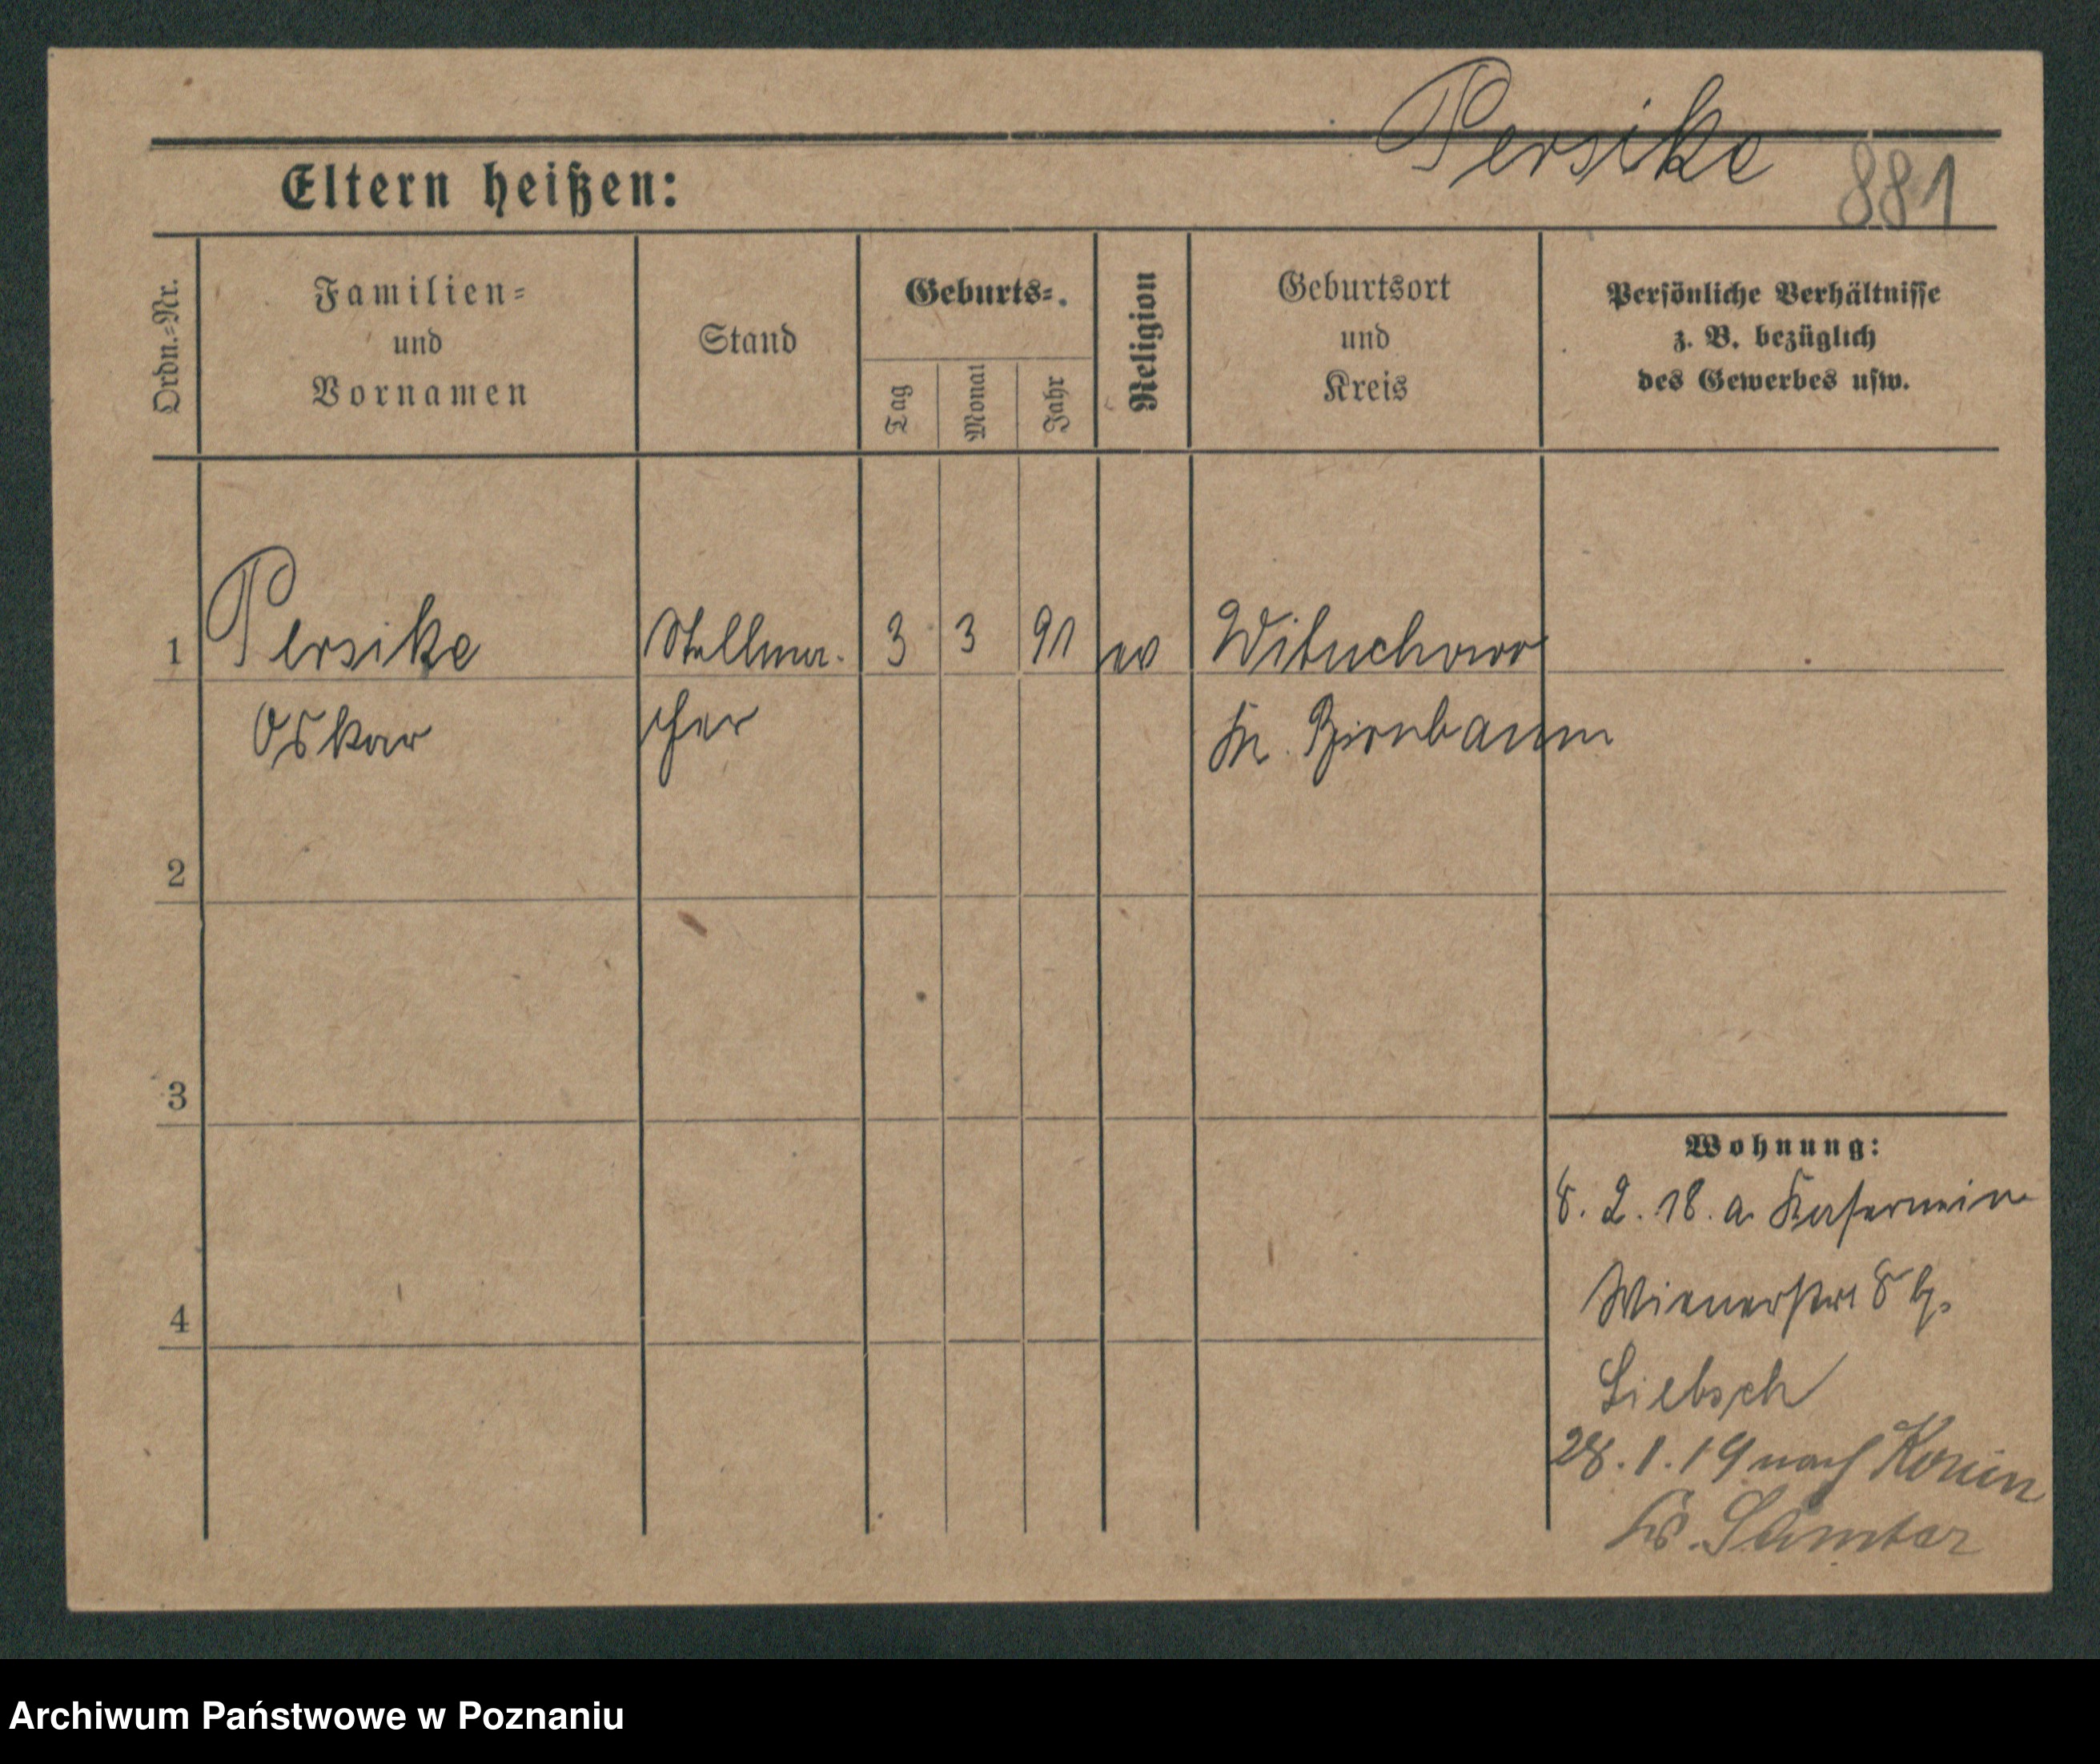 Persike
881
Eltern heißen:
Ordn.-Nr.
Familien-
und
Vornamen
Stand
Geburts-
Tag
Monat
Jahr
Religion
Geburtsort
und
Kreis
Persönliche Verhältnisse
z. B. bezüglich
des Gewerbes usw.
1 Persike Stellma- 3 3 91 ev Wituchowo
Oskar cher Kr. Birnbaum
2
3
4
Wohnung:
8. 2. 18. a.
Wienerstr 8 b.
Liebsch
28. 1. 19 nach
Kr. Samter
Archiwum Państwowe w Poznaniu